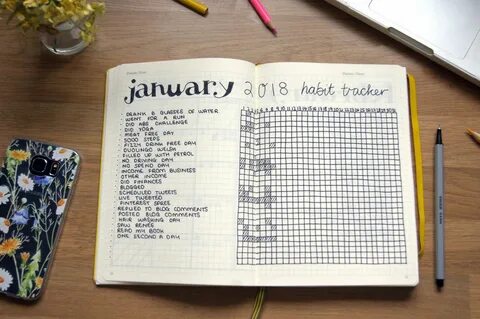 january 2018 habit tracker
DRANK 8 GLASSES OF WATER
WENT FOR A RUN
DID ABS CHALLENGE
DID YOGA
MEAT FREE DAY
5000 STEPS
FIZZY DRINK FREE DAY
DUOLINGO WELSH
FILLED UP WITH PETROL
NO DRIVING DAY
NO SPEND DAY
INCOME FROM BUSINESS
OTHER INCOME
DID FINANCES
BLOGGED
SCHEDULED TWEETS
LIVE TWEETED
PINTEREST SPREE
REPLIED TO BLOG COMMENTS
POSTED BLOG COMMENTS
HAIR WASHING DAY
SAW RENEE
READ MY BOOK
ONE SECOND A DAY